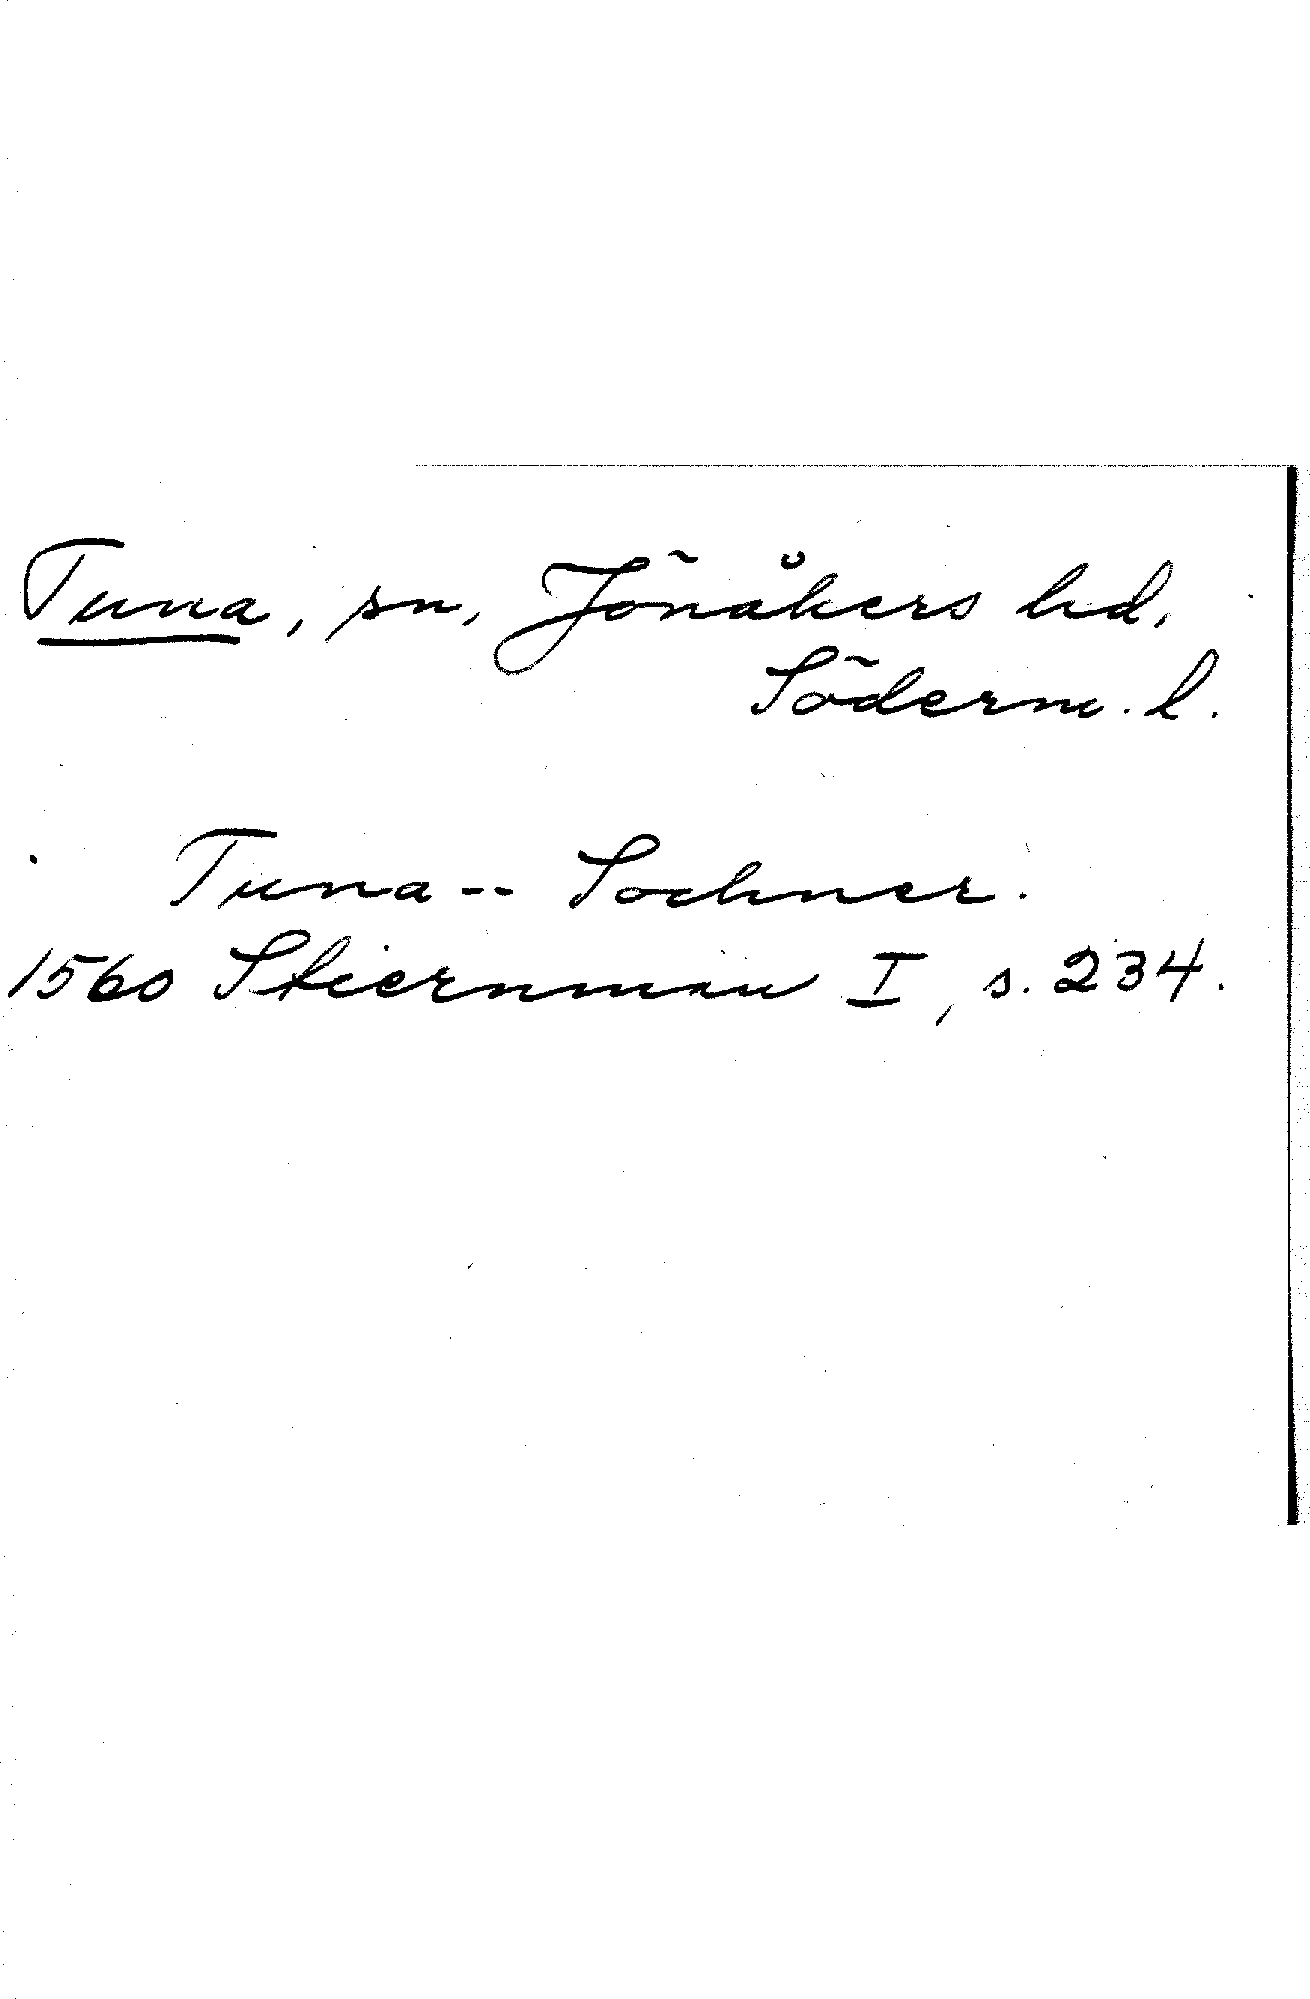 Tuna, sn, Jönåkers hd,
Söderm. l.
Tuna-- Sochner.
1560 Stiernman I, s. 234.